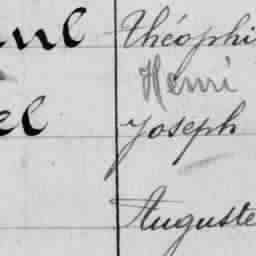 Théophi
Henri
Joseph
Auguste